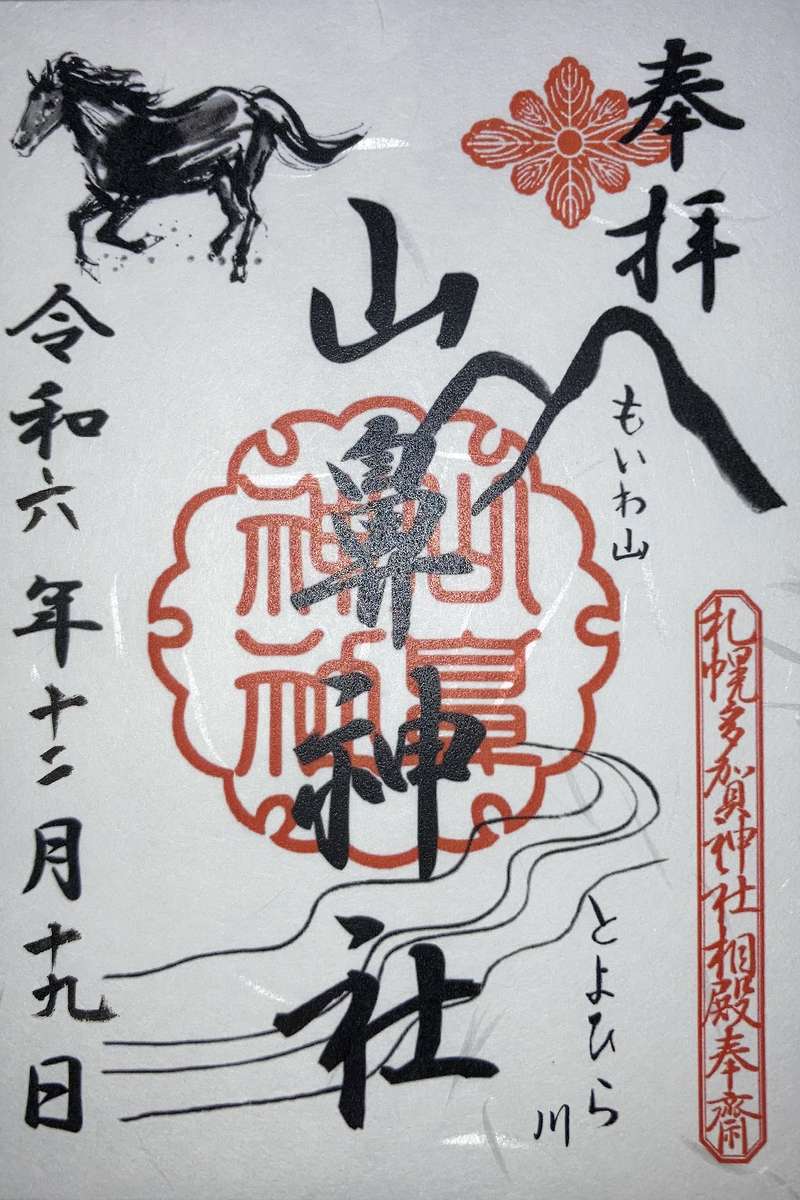 奉拝
もいわ山
札幌多賀神社相殿奉齋
とよひら川
山鼻神社
山鼻神社
令和六年十二月十九日